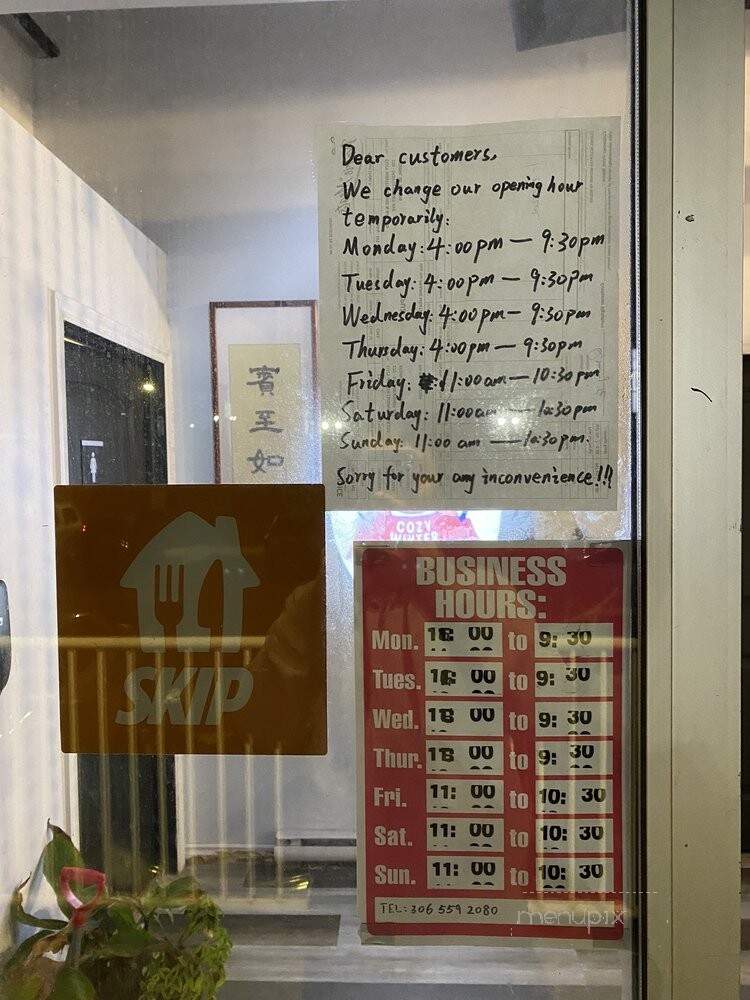 Dear customers,
We change our opening hour
temporarily:
Monday: 4:00pm — 9:30pm
Tuesday: 4:00pm — 9:30pm
Wednesday: 4:00pm — 9:30pm
Thursday: 4:00pm — 9:30pm
Friday: 11:00am — 10:30pm
Saturday: 11:00am — 10:30pm
Sunday: 11:00 am — 10:30pm.
Sorry for your any inconvenience!!!
賓
至
如
COZY
WINTER
SKIP
BUSINESS
HOURS:
Mon. 00 to 9: 30
Tues. 00 to 9: 30
Wed. 00 to 9: 30
Thur. 00 to 9: 30
Fri. 11: 00 to 10: 30
Sat. 11: 00 to 10: 30
Sun. 11: 00 to 10: 30
TEL: 306 559 2080
menupix